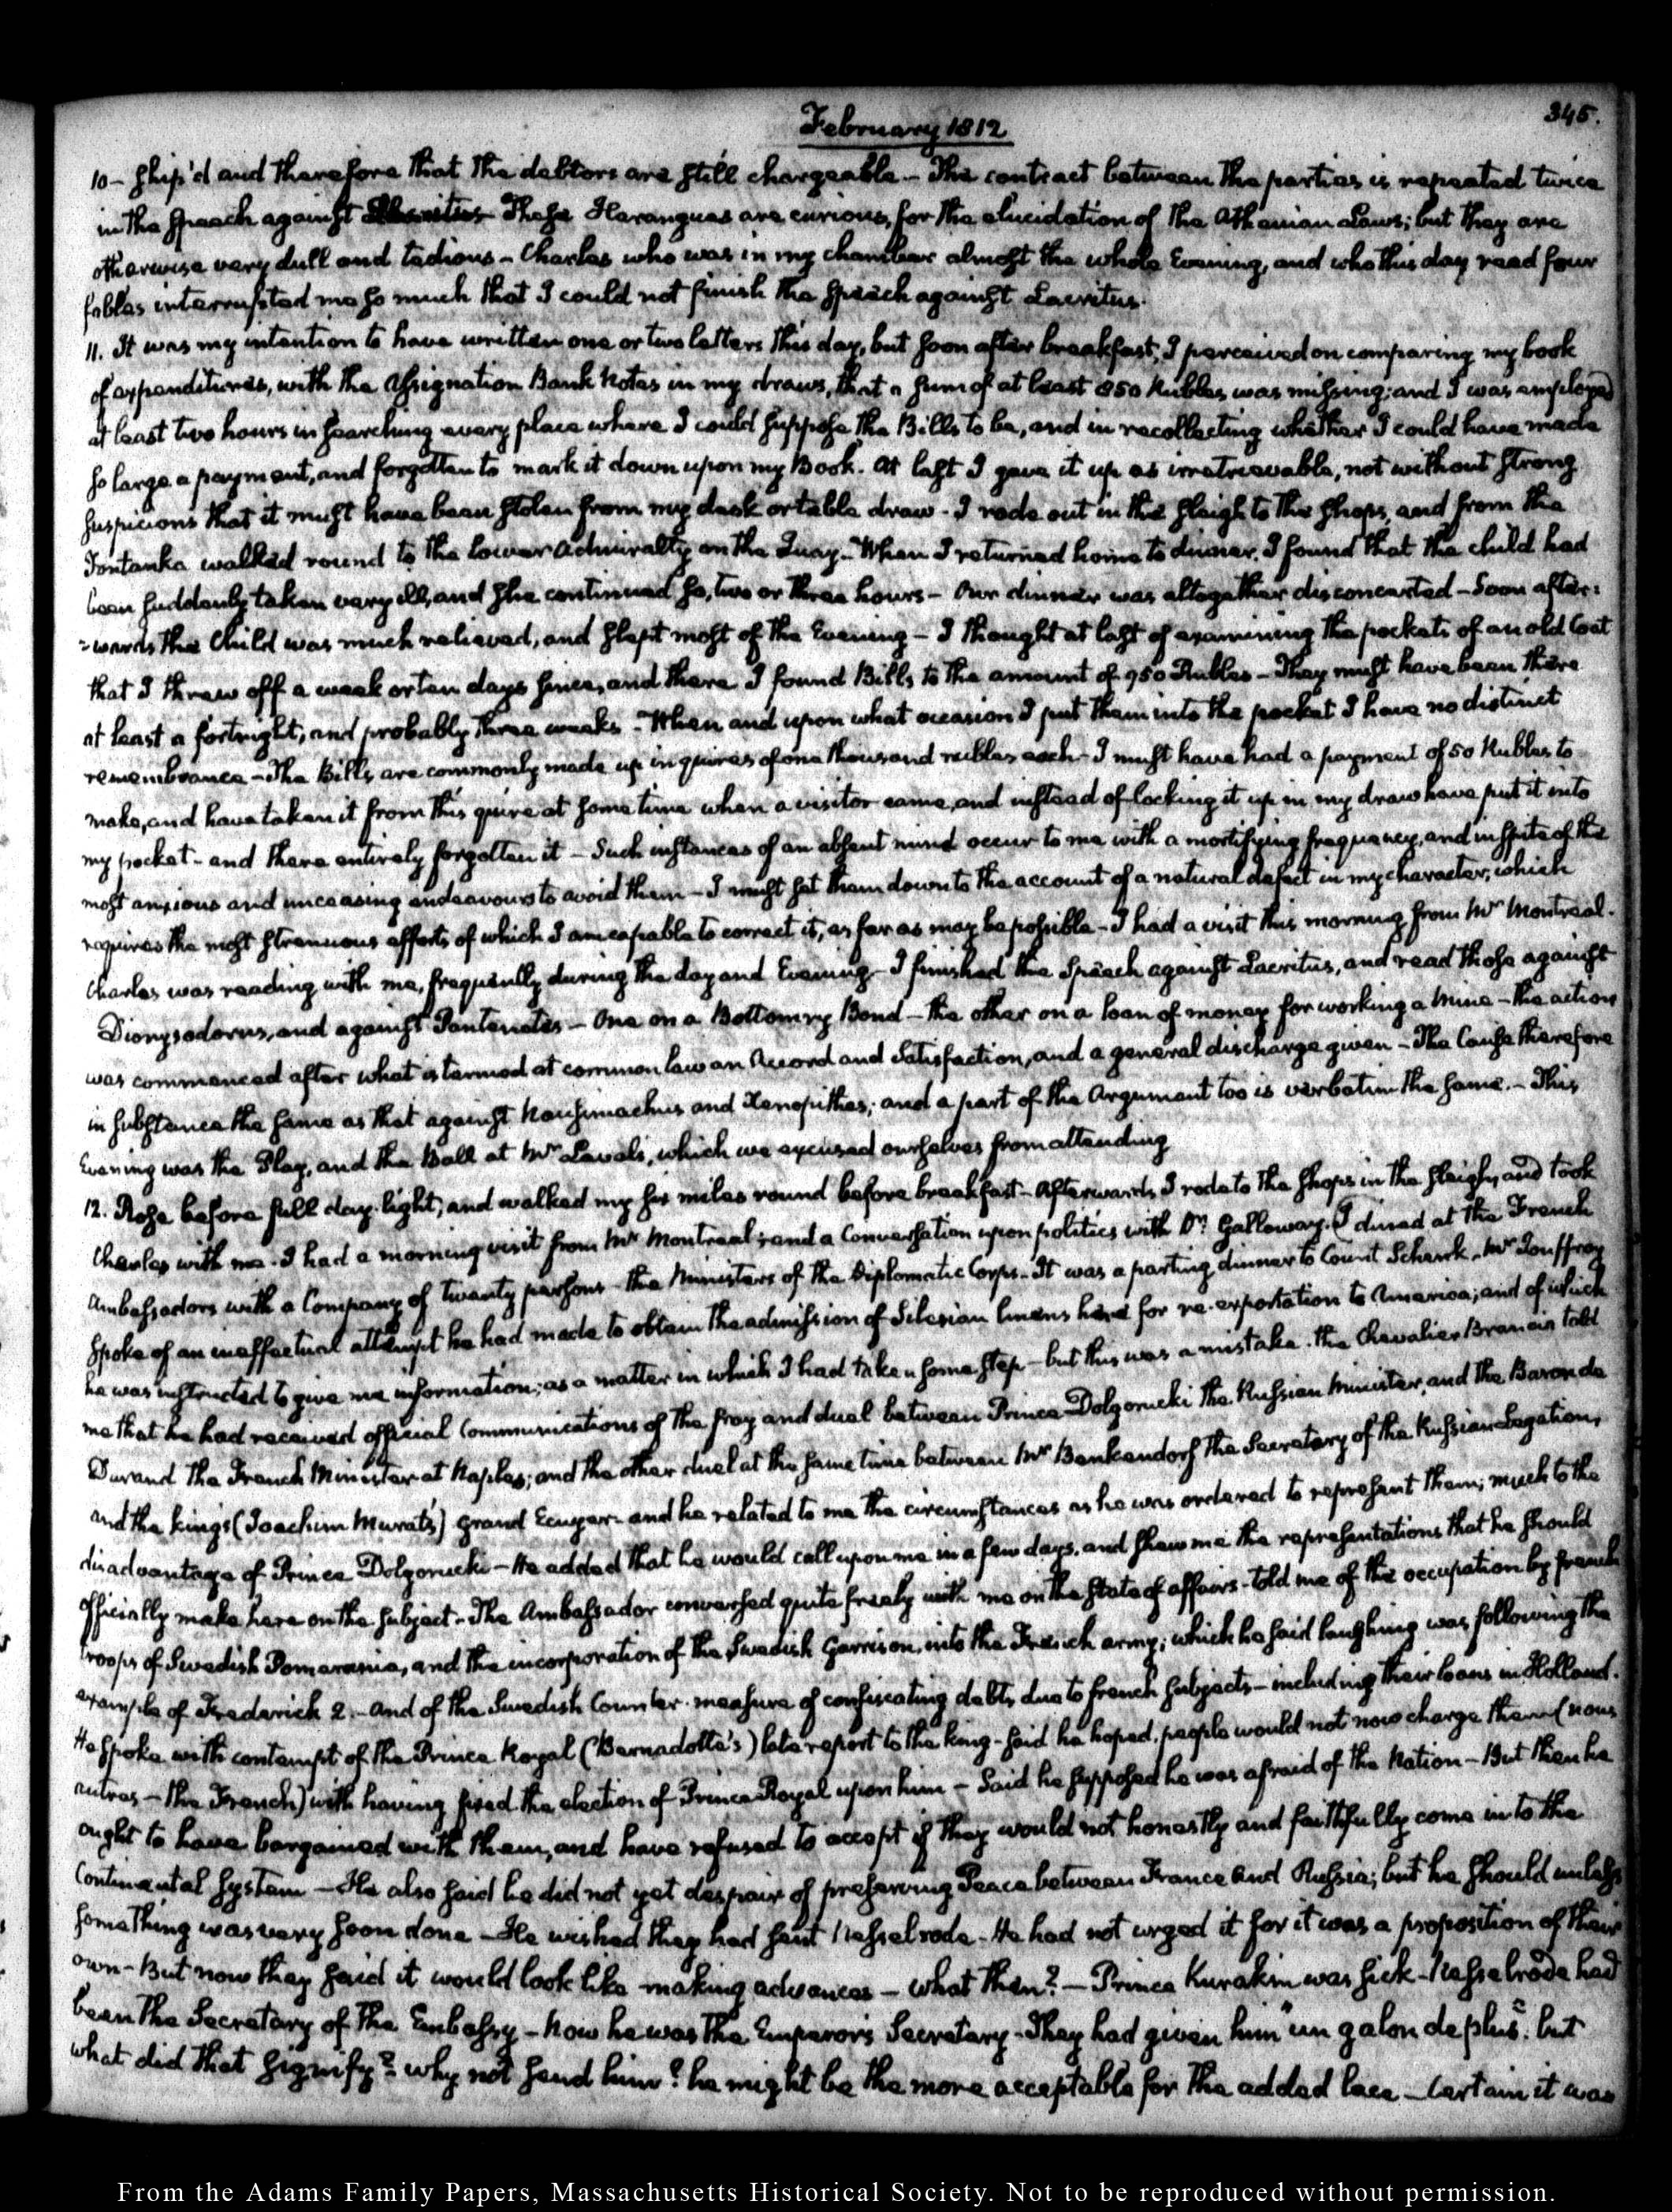 February 1812
345.
10- ship'd and therefore that the debtors are still chargeable - The contract between the parties is repeated twice
in the Speech against These Harangues are curious, for the elucidation of the Athenian Laws; but they are
otherwise very dull and tedious - Charles who was in my chamber almost the whole Evening, and who this day read four
fables interrupted me so much that I could not finish the Speech against Lacritus.
11. It was my intention to have written one or two letters this day, but soon after breakfast, I perceived on comparing my book
of expenditures, with the Assignation Bank Notes in my draws, that a sum of at least 850 Rubles was missing; and I was employed
at least two hours in searching every place where I could suppose the Bills to be, and in recollecting whether I could have made
so large a payment, and forgotten to mark it down upon my Book. At last I gave it up as irretrievable, not without strong
suspicions that it must have been stolen from my desk or table draw - I rode out in the sleigh to the shops, and from the
Fontanka walked round to the lower Admiralty on the Quay - When I returned home to dinner, I found that the child had
been suddenly taken very ill, and she continued so, two or three hours - Our dinner was altogether disconcerted - Soon after=
=wards the Child was much relieved, and slept most of the Evening - I thought at last of examining the pockets of an old Coat
that I threw off a week or ten days since, and there I found Bills to the amount of 950 Rubles - They must have been there
at least a fortnight, and probably three weeks - When and upon what occasion I put them into the pocket I have no distinct
remembrance - The Bills are commonly made up in quires of one thousand rubles each - I must have had a payment of 50 Rubles to
make, and have taken it from this quire at some time when a visitor came, and instead of locking it up in my draw have put it into
my pocket - and there entirely forgotten it - Such instances of an absent mind occur to me with a mortifying frequency, and in spite of the
most anxious and unceasing endeavours to avoid them - I must set them down to the account of a natural defect in my character, which
requires the most strenuous efforts of which I am capable to correct it, as far as may be possible - I had a visit this morning from Mr Montreal.
Charles was reading with me, frequently during the day and Evening - I finished the Speech against Lacritus, and read those against
Dionysodorus, and against Pantenates - One on a Bottomry Bond - the other on a loan of money for working a Mine - the action
was commenced after what is termed at common law an Accord and Satisfaction, and a general discharge given - The Cause therefore
in substance the same as that against Nausimachus and Xenopithes; and a part of the Argument too is verbatim the same. - This
Evening was the Play, and the Ball at Mr Laval's, which we excused ourselves from attending
12. Rose before full day-light, and walked my six miles round before breakfast - Afterwards I rode to the shops in the sleigh, and took
Charles with me. I had a morning visit from Mr Montreal; and a Conversation upon politics with Dr Galloway. I dined at the French
Ambassadors with a Company of twenty persons - the Ministers of the Diplomatic Corps. It was a parting dinner to Count Schenk. Mr Jouffroy
spoke of an ineffectual attempt he had made to obtain the admission of Silesian linens here for re-exportation to America; and of which
he was instructed to give me information; as a matter in which I had taken some step - but this was a mistake. The Chevalier Brancia told
me that he had received official Communications of the fray and duel between Prince Dolgorucki the Russian Minister, and the Baron de
Durand the French Minister at Naples; and the other duel at the same time between Mr Benkendorf the Secretary of the Russian Legation,
and the king's (Joachim Murat's) grand Ecuyer - and he related to me the circumstances as he was ordered to represent them; much to the
disadvantage of Prince Dolgorucki - He added that he would call upon me in a few days, and shew me the representations that he should
officially make here on the subject - The Ambassador conversed quite freely with me on the State of affairs - told me of the occupation by french
troops of Swedish Pomerania, and the incorporation of the Swedish Garrison, into the French army; which he said laughing was following the
example of Frederick 2. - And of the Swedish Counter-measure of confiscating debts due to french subjects - including their loans in Holland.
He spoke with contempt of the Prince Royal (Bernadotte's) late report to the king - said he hoped people would not now charge them (nous
autres - the French) with having fixed the election of Prince Royal upon him - Said he supposed he was afraid of the Nation - But then he
ought to have bargained with them, and have refused to accept if they would not honestly and faithfully come into the
Continental System - He also said he did not yet despair of preserving Peace between France and Russia; but he should unless
something was very soon done - He wished they had sent Nesselrode - He had not urged it for it was a proposition of their
own - But now they said it would look like making advances - what then? - Prince Kurakin was sick - Nesselrode had
been the Secretary of the Embassy - Now he was the Emperor's Secretary - They had given him "un galon de plus": but
what did that signify? why not send him? he might be the more acceptable for the added lace - Certain it was
From the Adams Family Papers, Massachusetts Historical Society. Not to be reproduced without permission.